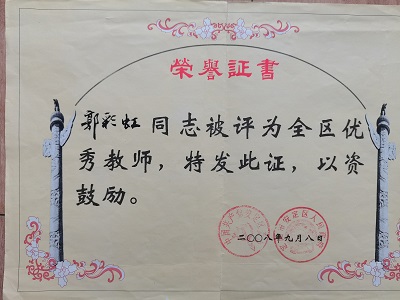 榮譽証書
郭彩虹同志被评为全区优
秀教师，特发此证，以资
鼓励。
二〇〇八年九月八日